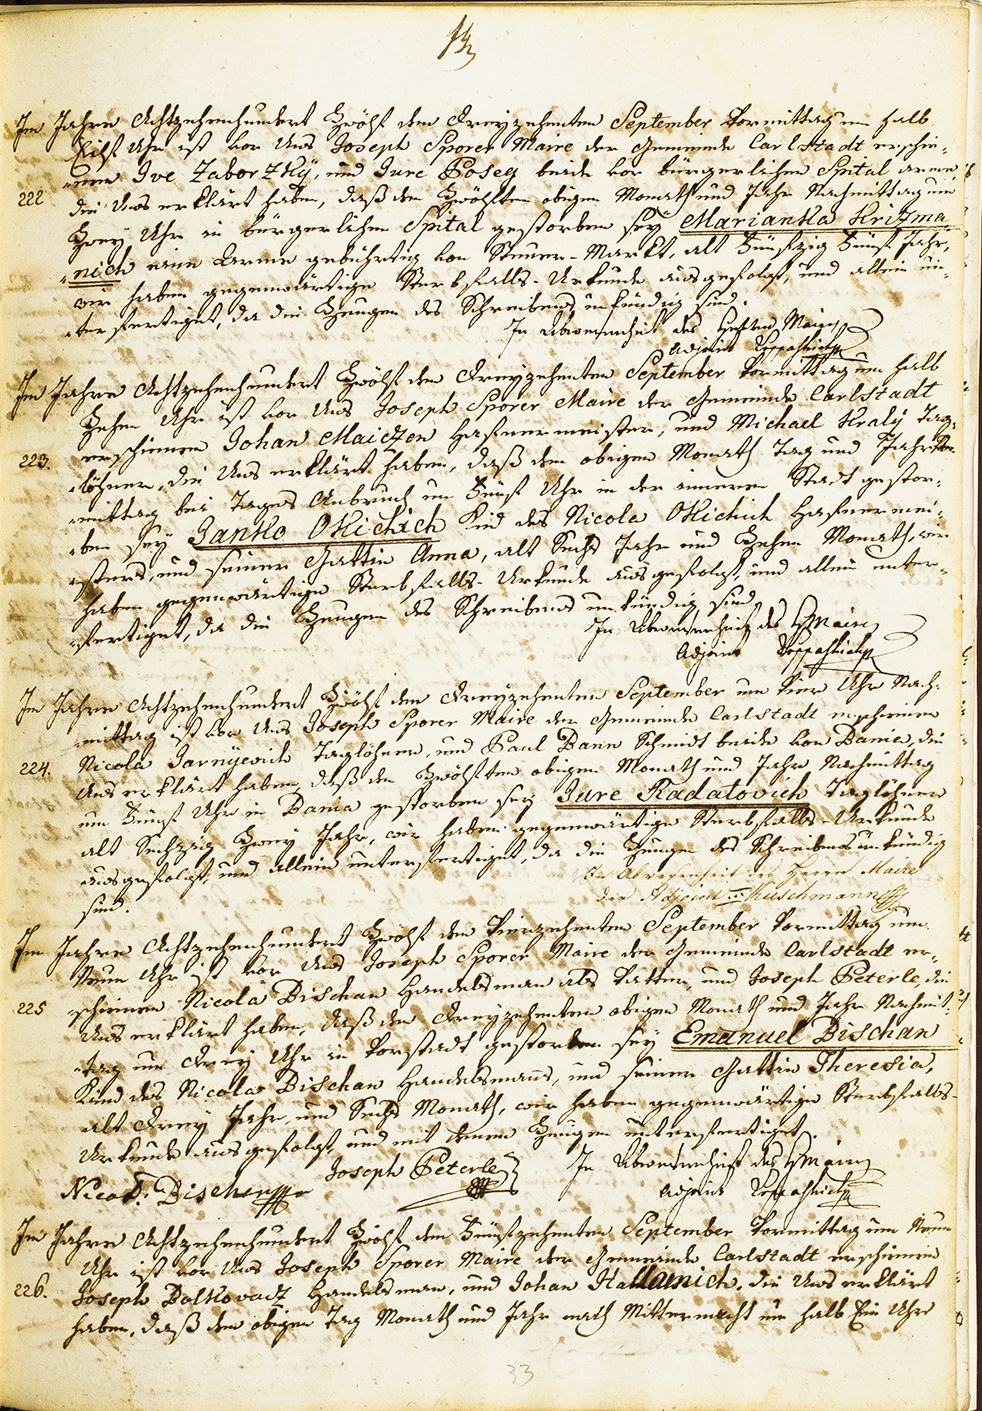 Im Jahre Achtzehenhundert Zwölf den Dreyzehenten September Vormittag um halb
Eilf Uhr ist vor Uns Joseph Sporer Maire der Gemeinde Carlstadt erschie-
nen Ive Zaborzky, und Jure Poseg beide vor bürgerlichen Spital arme
222 die Uns erklärt haben, daß den Zwölften obigen Monath und Jahr Nachmittag um
Zwey Uhr in bürgerlichen Spital gestorben sey Marianka Krizma
nich eine Arme gebührtig von Steuer-Markt, alt Fünfzig Fünf Jahr,
wir haben gegenwärtige Sterbfalls-Urkunde ausgefolgt, und allein un-
terfertiget, da die Zeugen des Schreibens unkündig sind.
In Abwesenheit des Herrn Maire
Adjoint
Im Jahre Achtzehenhundert Zwölf den Dreyzehenten September Vormittag um halb
Zehen Uhr ist vor Uns Joseph Sporer Maire der Gemeinde Carlstadt
erschienen Johan Maiczen Hafnermeister, und Michael Kraly Tag-
223. löhner, die Uns erklärt haben, daß den obigen Monath Tag und Jahr Vor-
mittag bei Tages Anbruch um Fünf Uhr in der inneren Stadt gestor-
ben sey Janko Okichich Kind des Nicola Okichich Hafnermei-
sters, und seiner Gattin Anna, alt Sechs Jahr und Zehen Monath, wir
haben gegenwärtige Sterbfalls-Urkunde ausgefolgt, und allein unter-
fertiget, da die Zeugen des Schreibens unkündig sind.
In Abwesenheit des H Maire
Adjoint
Im Jahre Achtzehenhundert Zwölf den Dreyzehenten September um vier Uhr Nach-
mittag ist vor Uns Joseph Sporer Maire der Gemeinde Carlstadt erschienen
Nicola Jarnyevich Taglöhner, und Paul Bann Schmidt beide von Bania, die
224. Uns erklärt haben, daß den Zwölften obigen Monath und Jahr Nachmittag
um Fünf Uhr in Bania gestorben sey Jure Radatovich Taglöhner
alt Sechzig Zwey Jahr, wir haben gegenwärtige Sterbfalls-Urkunde
ausgefolgt, und allein unterfertiget, da die Zeugen des Schreibens unkündig
sind.
In Abwesenheit des Herrn Maire
der Adjoint Muschmann
Im Jahre Achtzehenhundert Zwölf den Vierzehenten September Vormittag um
Neun Uhr ist vor Uns Joseph Sporer Maire der Gemeinde Carlstadt er-
225 schienen Nicola Bischan Handelsman als Vatter, und Joseph Peterle, die
Uns erklärt haben, daß den Dreyzehenten obigen Monath und Jahr Nachmit-
tag um Drey Uhr in Vorstadt gestorben sey Emanuel Bischan
Kind des Nicola Bischan Handelsmans, und seiner Gattin Theresia,
alt Drey Jahr, und Sechs Monath, wir haben gegenwärtige Sterbfalls-
Urkunde ausgefolgt, und mit denen Zeugen unterfertiget.
Joseph Peterle In Abwesenheit des H Maire
Nicol. Bischan Adjoint
Im Jahre Achtzehenhundert Zwölf den Fünfzehenten September Vormittag um Neun
Uhr ist vor Uns Joseph Sporer Maire der Gemeinde Carlstadt erschienen
226. Joseph Dolkovacz Handelsman, und Johan Hallanich, die Uns erklärt
haben, daß den obigen Tag Monath und Jahr nach Mitternacht um halb Ein Uhr
33